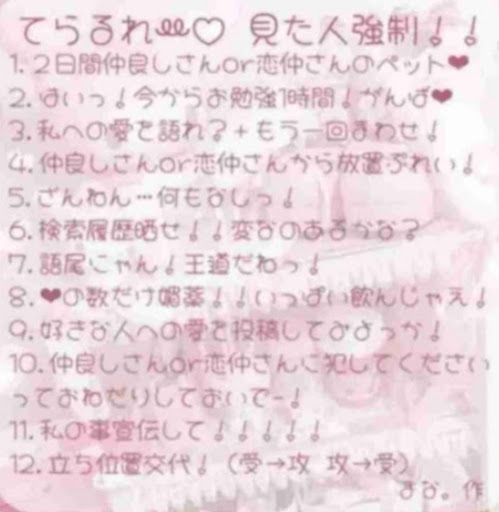 てらるれ♡ 見た人強制！！
1. 2日間仲良しさんor恋仲さんのペット❤
2. はいっ！今からお勉強1時間！がんば❤
3. 私への愛を語れ？+もう一回まわせ！
4. 仲良しさんor恋仲さんから放置ぷれい！
5. ざんねん…何もなしっ！
6. 検索履歴晒せ！！変なのあるかな？
7. 語尾にゃん！王道だねっ！
8. ❤の数だけ媚薬！！いっぱい飲んじゃえ！
9. 好きな人への愛を投稿しておよっか！
10. 仲良しさんor恋仲さんに犯してください
っておねだりしておいでー！
11. 私の事宣伝して！！！！！
12. 立ち位置交代！（受→攻 攻→受）
まな。作